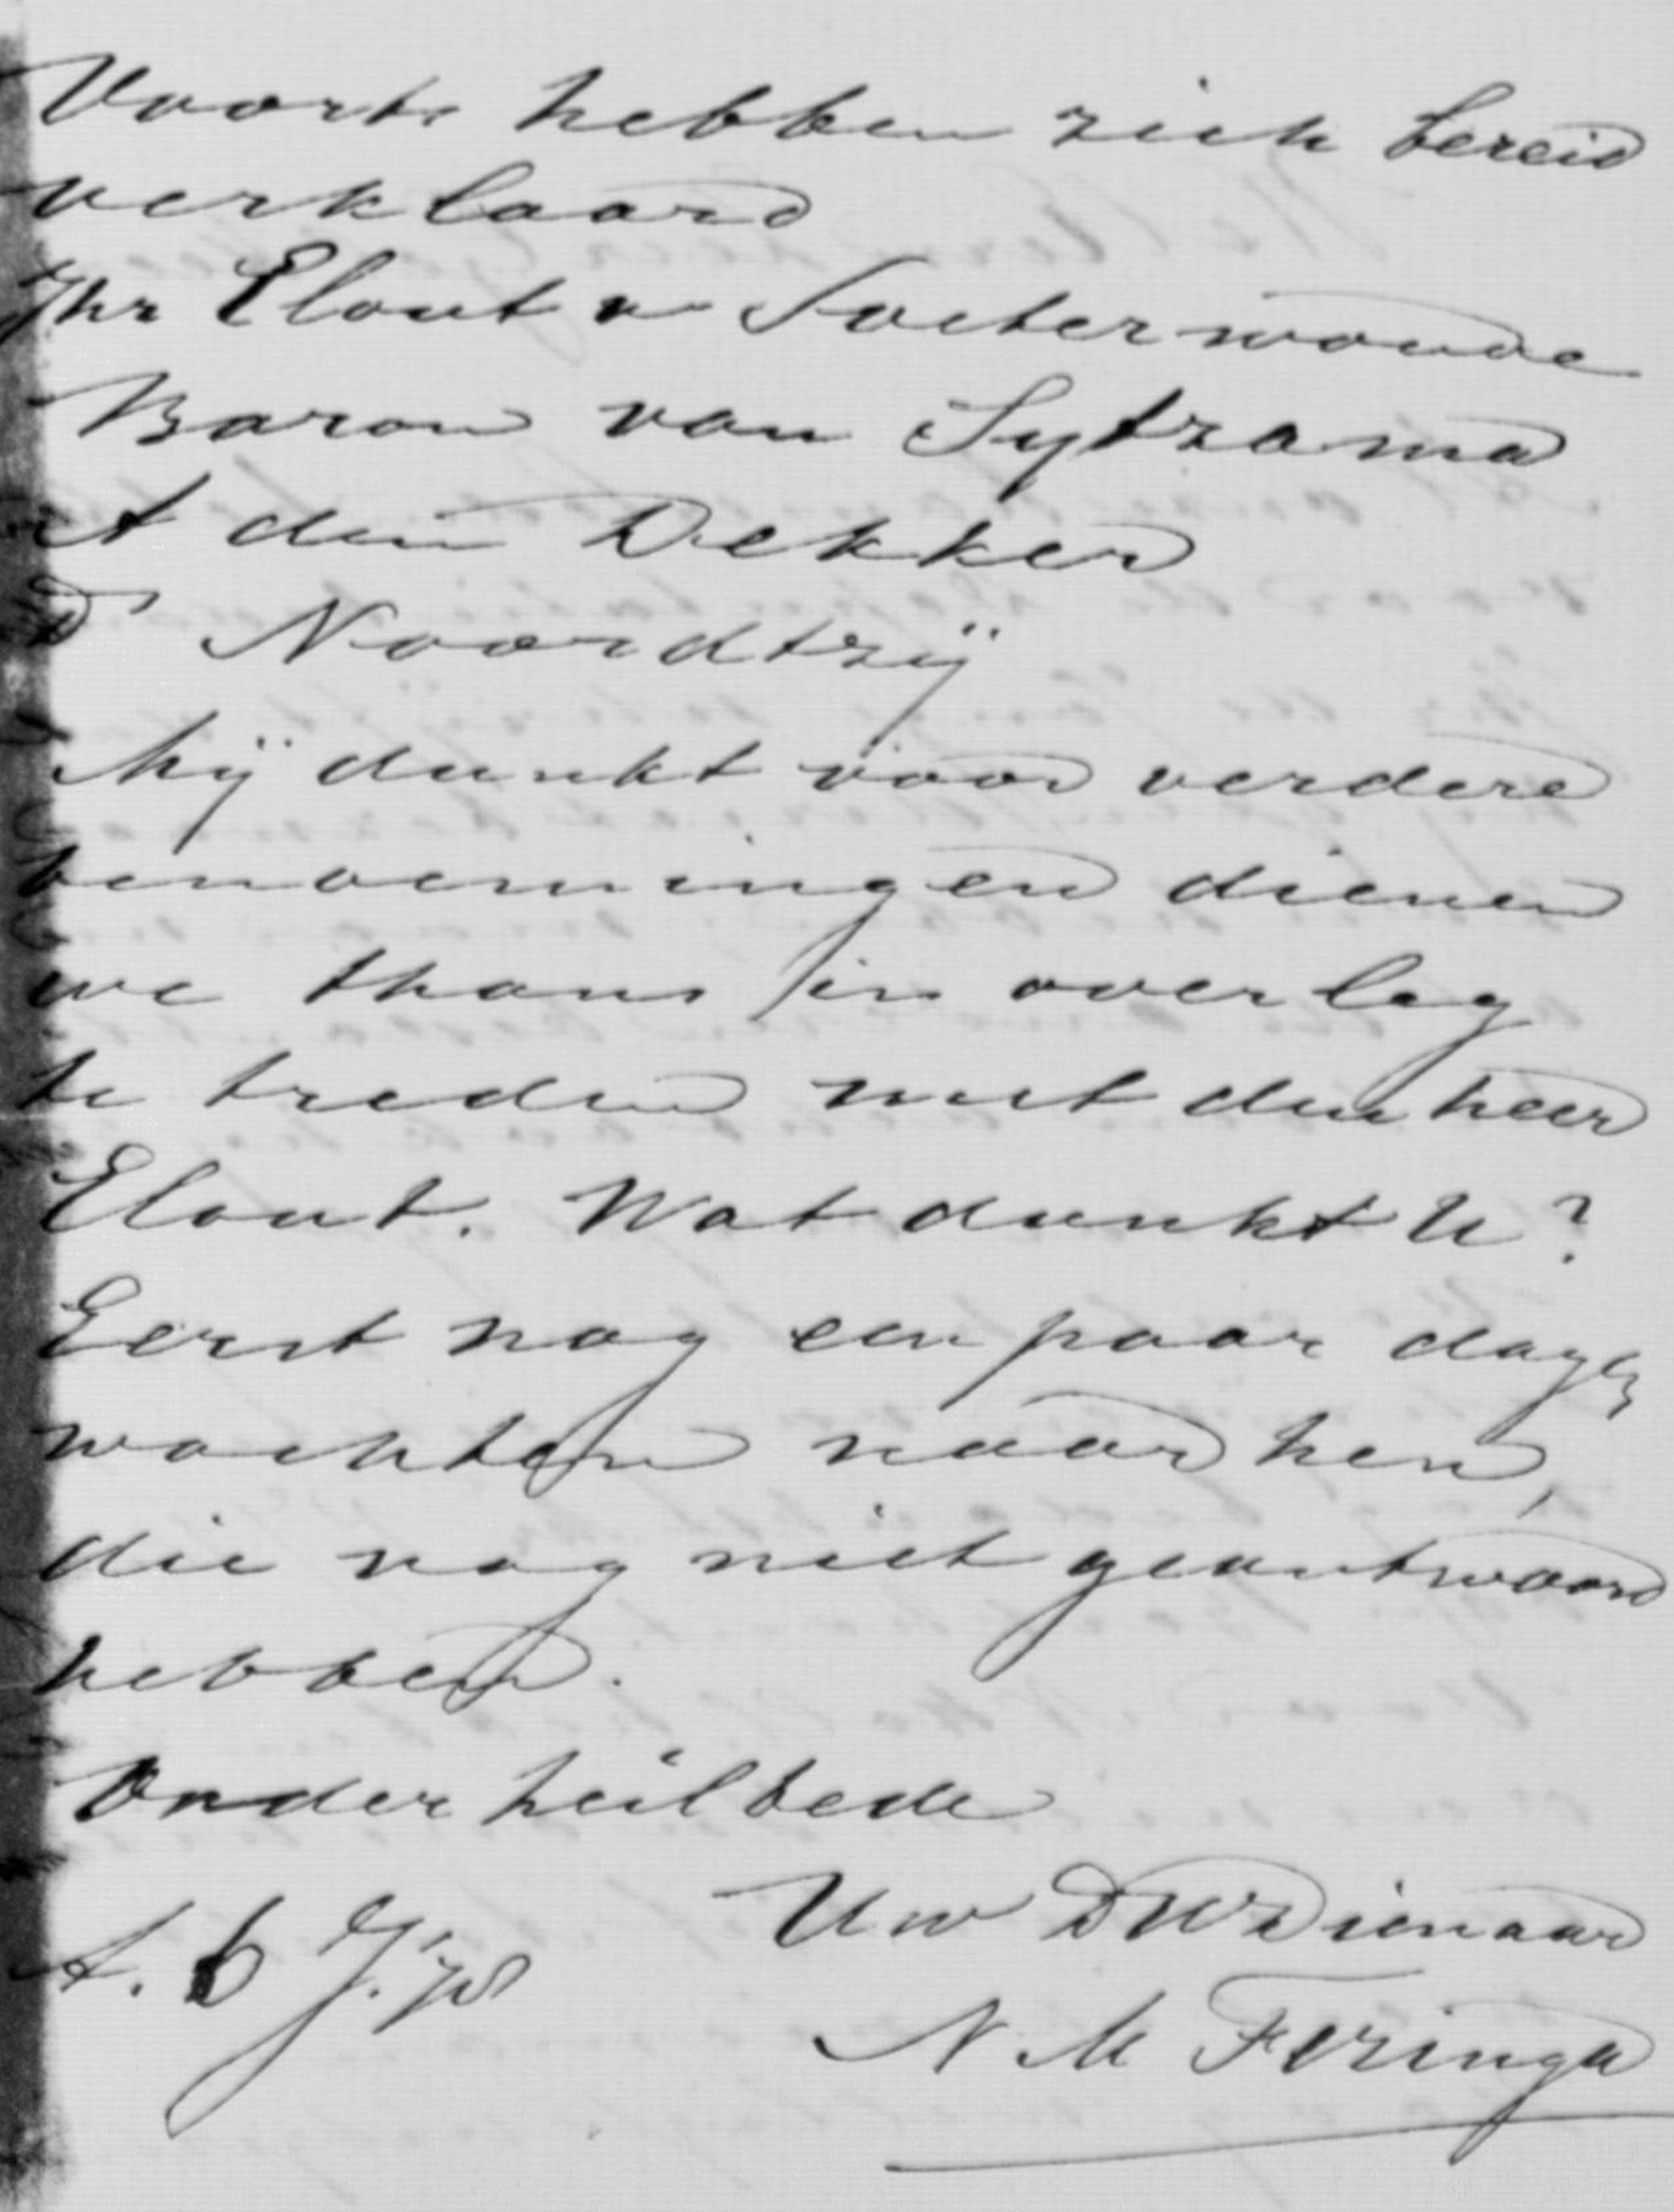 Voorts hebben zich bereid
verklaard
Jhr Elout v Soeterwoude
Baron van Sytzama
A den Dekker
D Noordtzÿ
Mÿ dunkt voor verdere
benoemingen dienen
we thans in overleg
te treden met den heer
Elout. Wat dunkt U?
Eerst nog een paar dagen
wachten naar hen,
die nog niet geantwoord
hebben.
Onder heilbede
Uw DWDienaar
A. 6 J. '78
N. M Feringa